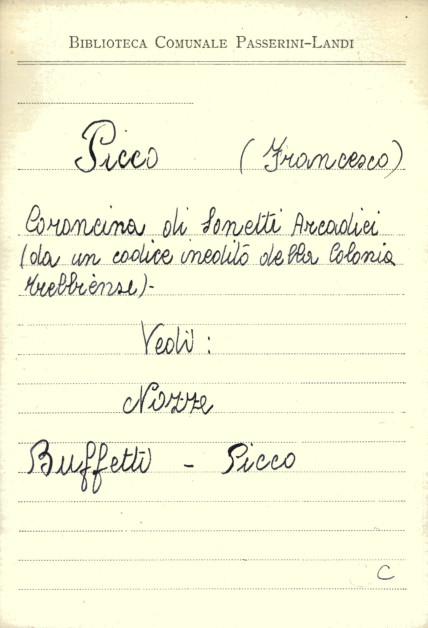 BIBLIOTECA COMUNALE PASSERINI-LANDI
Picco (Francesco)
Corancina di Sonetti Arcadici
(da un codice inedito della Colonia
trebbiense)-
Vedi :
Nozze
Buffetti - Picco
C